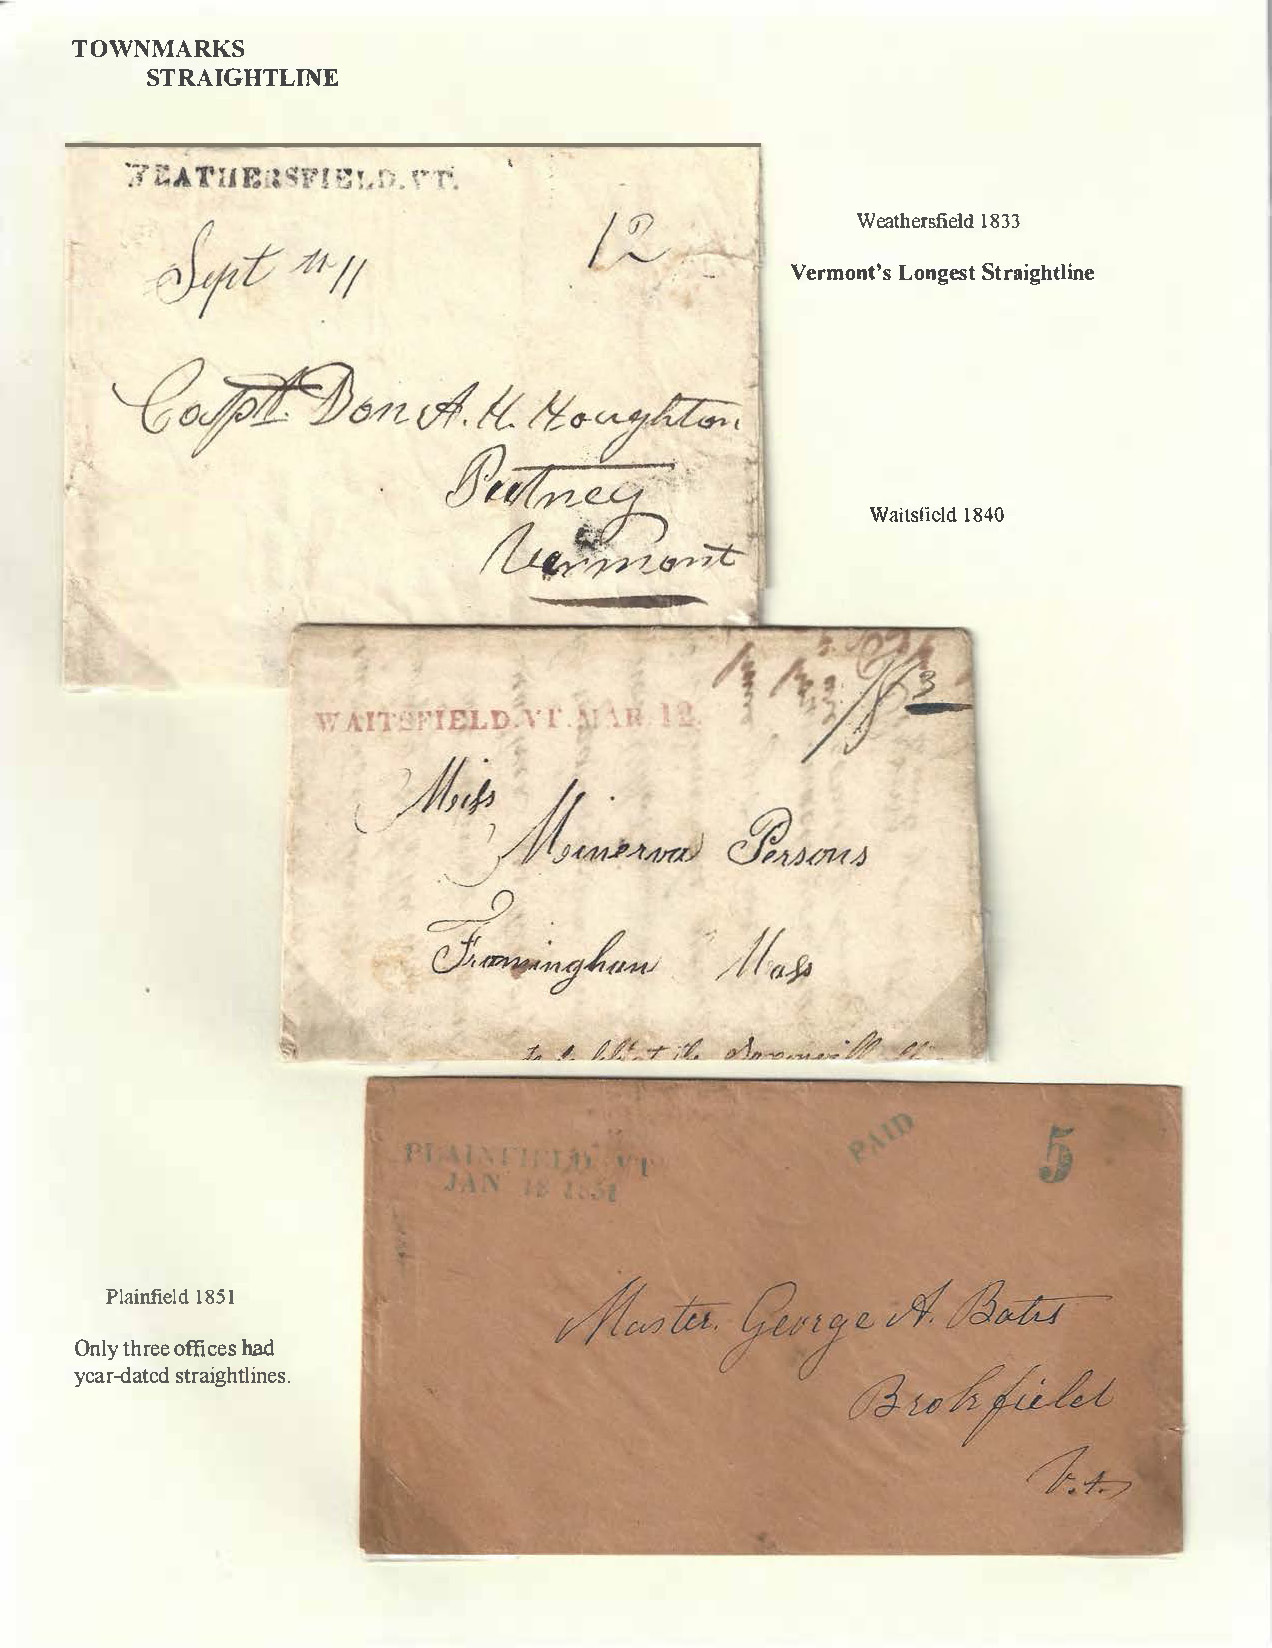 TOWNMARKS
STRAIGHTLINE
WEATHERSFIELD.VT.
Sept 11
12
Weathersfield 1833
Vermont's Longest Straightline
Capt. Don A. H. Houghton
Putney
Vermont
Waitsfield 1840
WAITSFIELD.VT.MAR.12.
Miss
Minerva Persons
Framingham Mass
PLAINFIELD VT
JAN 18 1851
PAID
5
Plainfield 1851
Only three offices had
year-dated straightlines.
Master. George A. Bates
Brokfield
V.t.